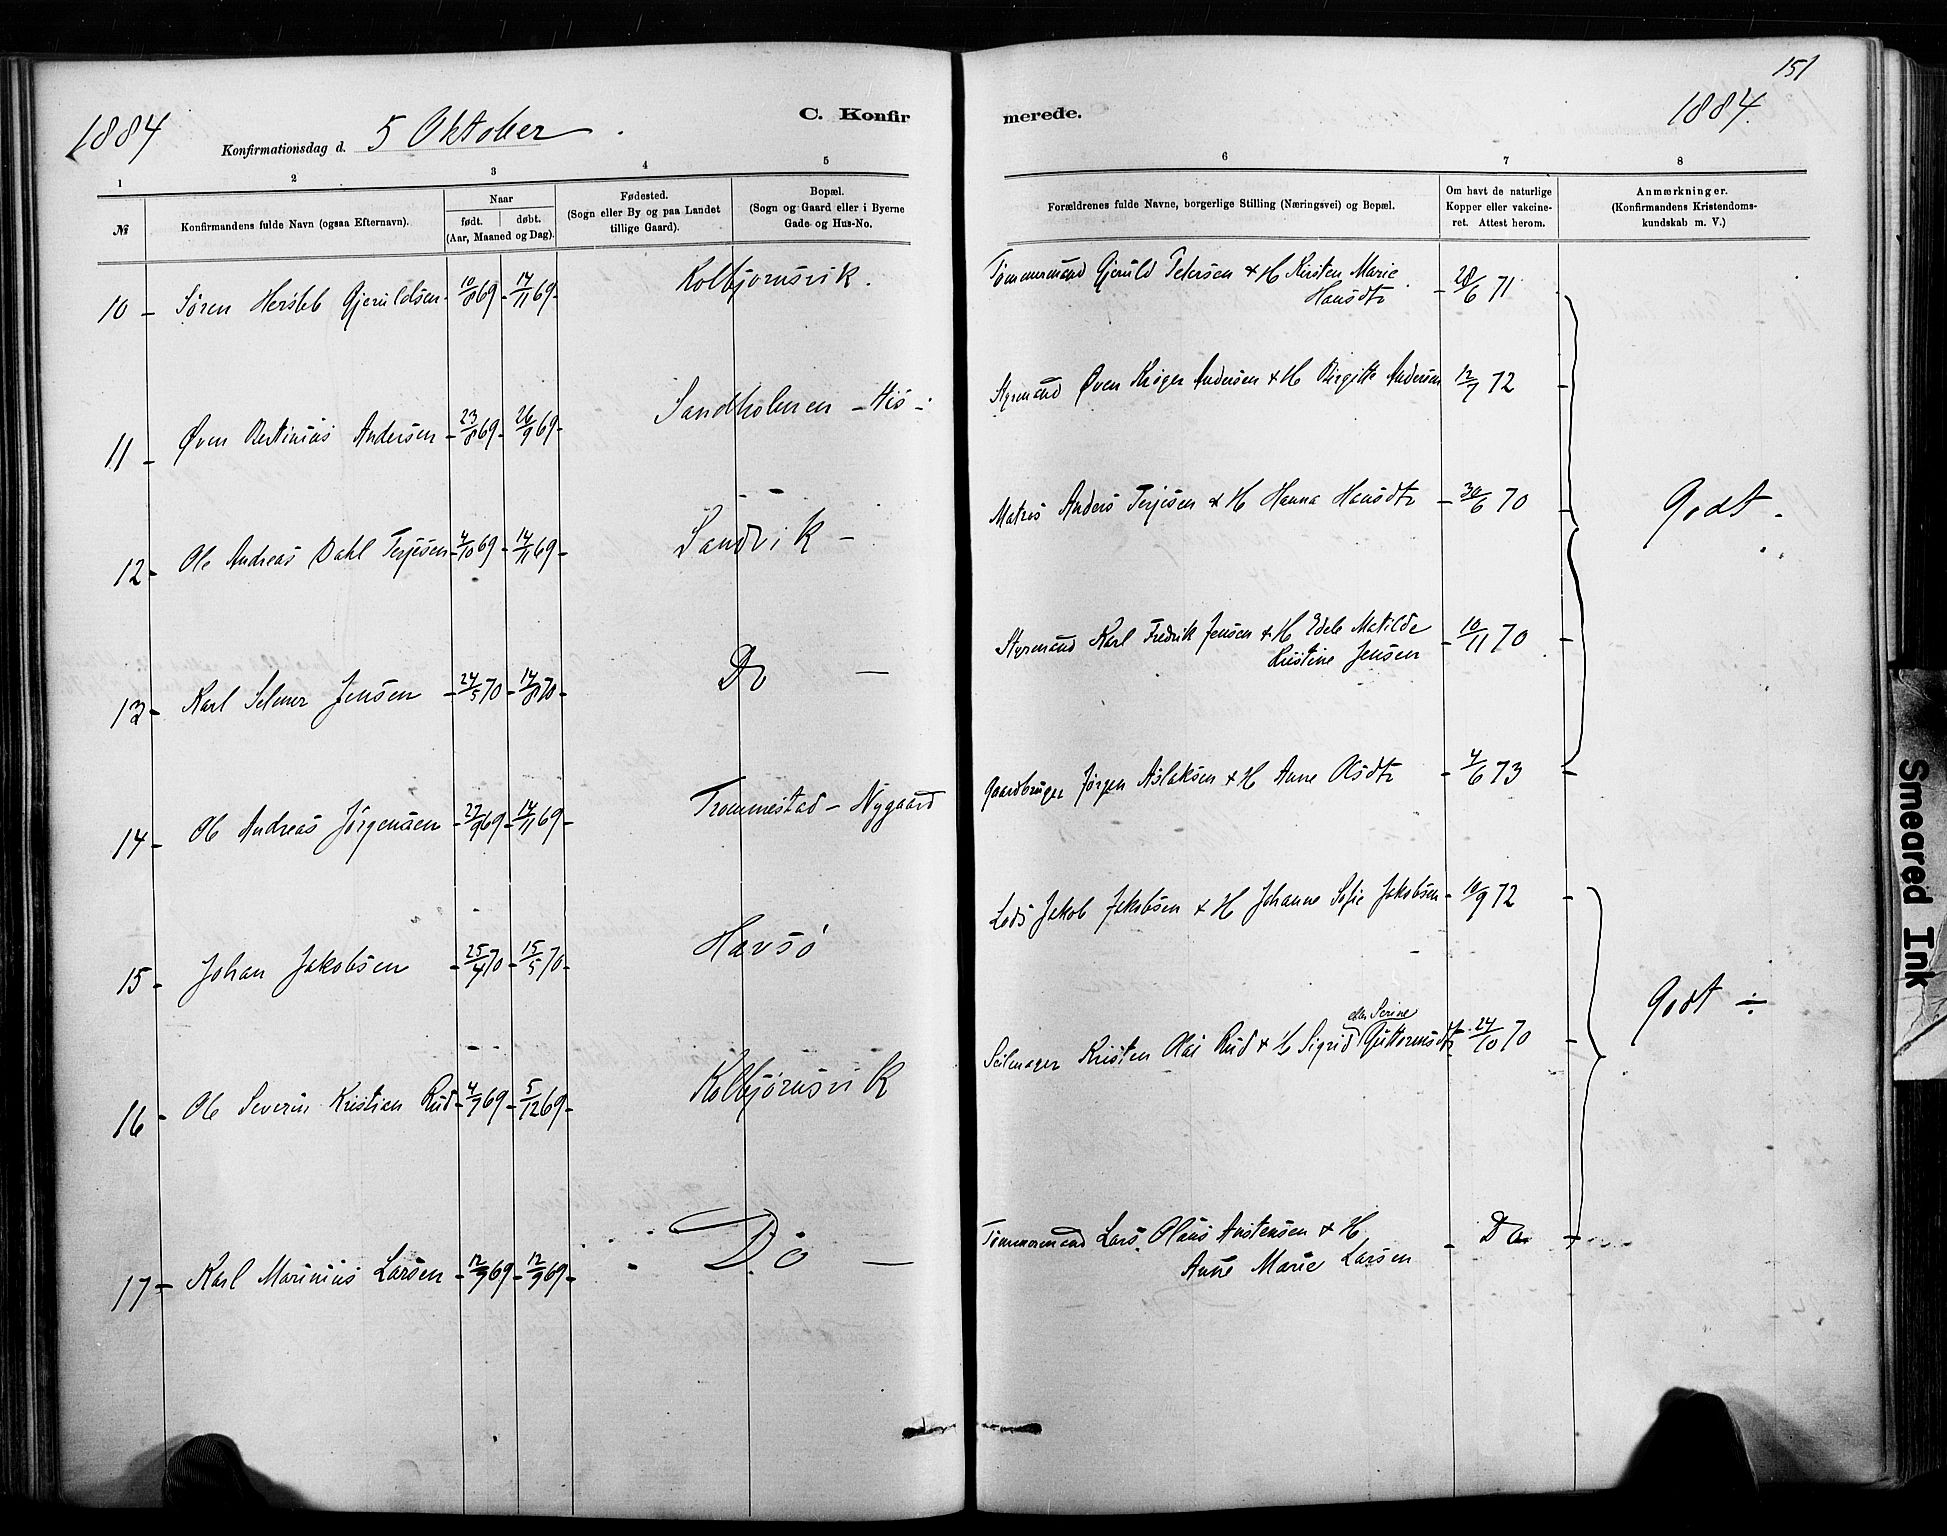 151
1884
5 Oktober
C. Konfir
merede.
1884.
Konfirmationsdag d.
1 2 3 4 5 6 7 8
№
Konfirmandens fulde Navn (ogsaa Efternavn).
Naar
født. døbt.
(Aar, Maaned og Dag).
Fødested.
(Sogn eller By og paa Landet
tillige Gaard).
Bopæl.
(Sogn og Gaard eller i Byerne
Gade- og Hus-No.
Forældrenes fulde Navne, borgerlige Stilling (Næringsvei) og Bopæl.
Om havt de naturlige
Kopper eller vakcine-
ret. Attest herom.
Anmærkninger.
(Konfirmandens Kristendoms-
kundskab m. V.)
10 - Søren Hersleb Gjeruldsen - 10/8 69 - 14/11 69 - Kolbjørnsvik. Tømmermand Gjeruld Petersen & H Kirsten Marie
Hansdtr - 28/6 71 -
11 - Øven Bertinius Andersen - 23/8 69 - 26/9 69 - Sandholmen - His - Styrmand Øven Krøger Andersen & H Birgitte Andersen 12/7 72 -
12 - Ole Andreas Dahl Terjesen - 4/10 69 - 14/11 69 - Sandvik - Matros Anders Terjesen & H Hanna Hansdtr - 30/6 70 - Godt -
13 - Karl Selmer Jensen - 24/5 70 - 14/8 70 - Do - Styrmand Karl Fredrik Jensen & H Edele Matilde
Kristine Jensen - 10/11 70 -
14 - Ole Andreas Jørgensen - 27/9 69 - 14/11 69 - Trommestad - Nygaard Gaardbruger Jørgen Aslaksen & H Anne Olsdtr - 4/6 73 -
15 - Johan Jakobsen - 25/4 70 - 15/5 70 - Havsø Lods Jakob Jakobsen & H Johanne Sofie Jakobsen - 10/9 72 -
eller Serine
16 - Ole Severin Kristian Rud - 4/7 69 - 5/12 69 - Kolbjørnsvik Seilmager Kristen Olai Rud & H Sigrid Guttormsdtr - 24/10 70 - Godt ÷
17 - Karl Marinius Larsen - 12/9 69 - 12/9 69 - Do - Tømmermand Lars Olaus Austensen & H
Anne Marie Larsen - Do -
Smeared Ink